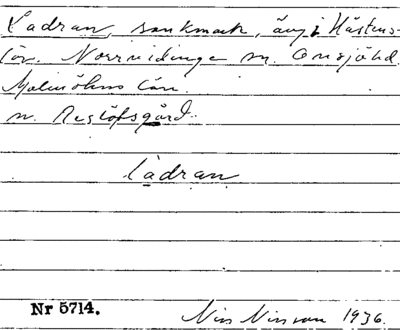 Ladran, sankmark, äng i Hästens-
löv. Norrvidinge sn. Onsjö hd.
Malmöhus län.
n. Reslöfsgård.
lādran
Nr 5714.
Nils Nilsson 1936.